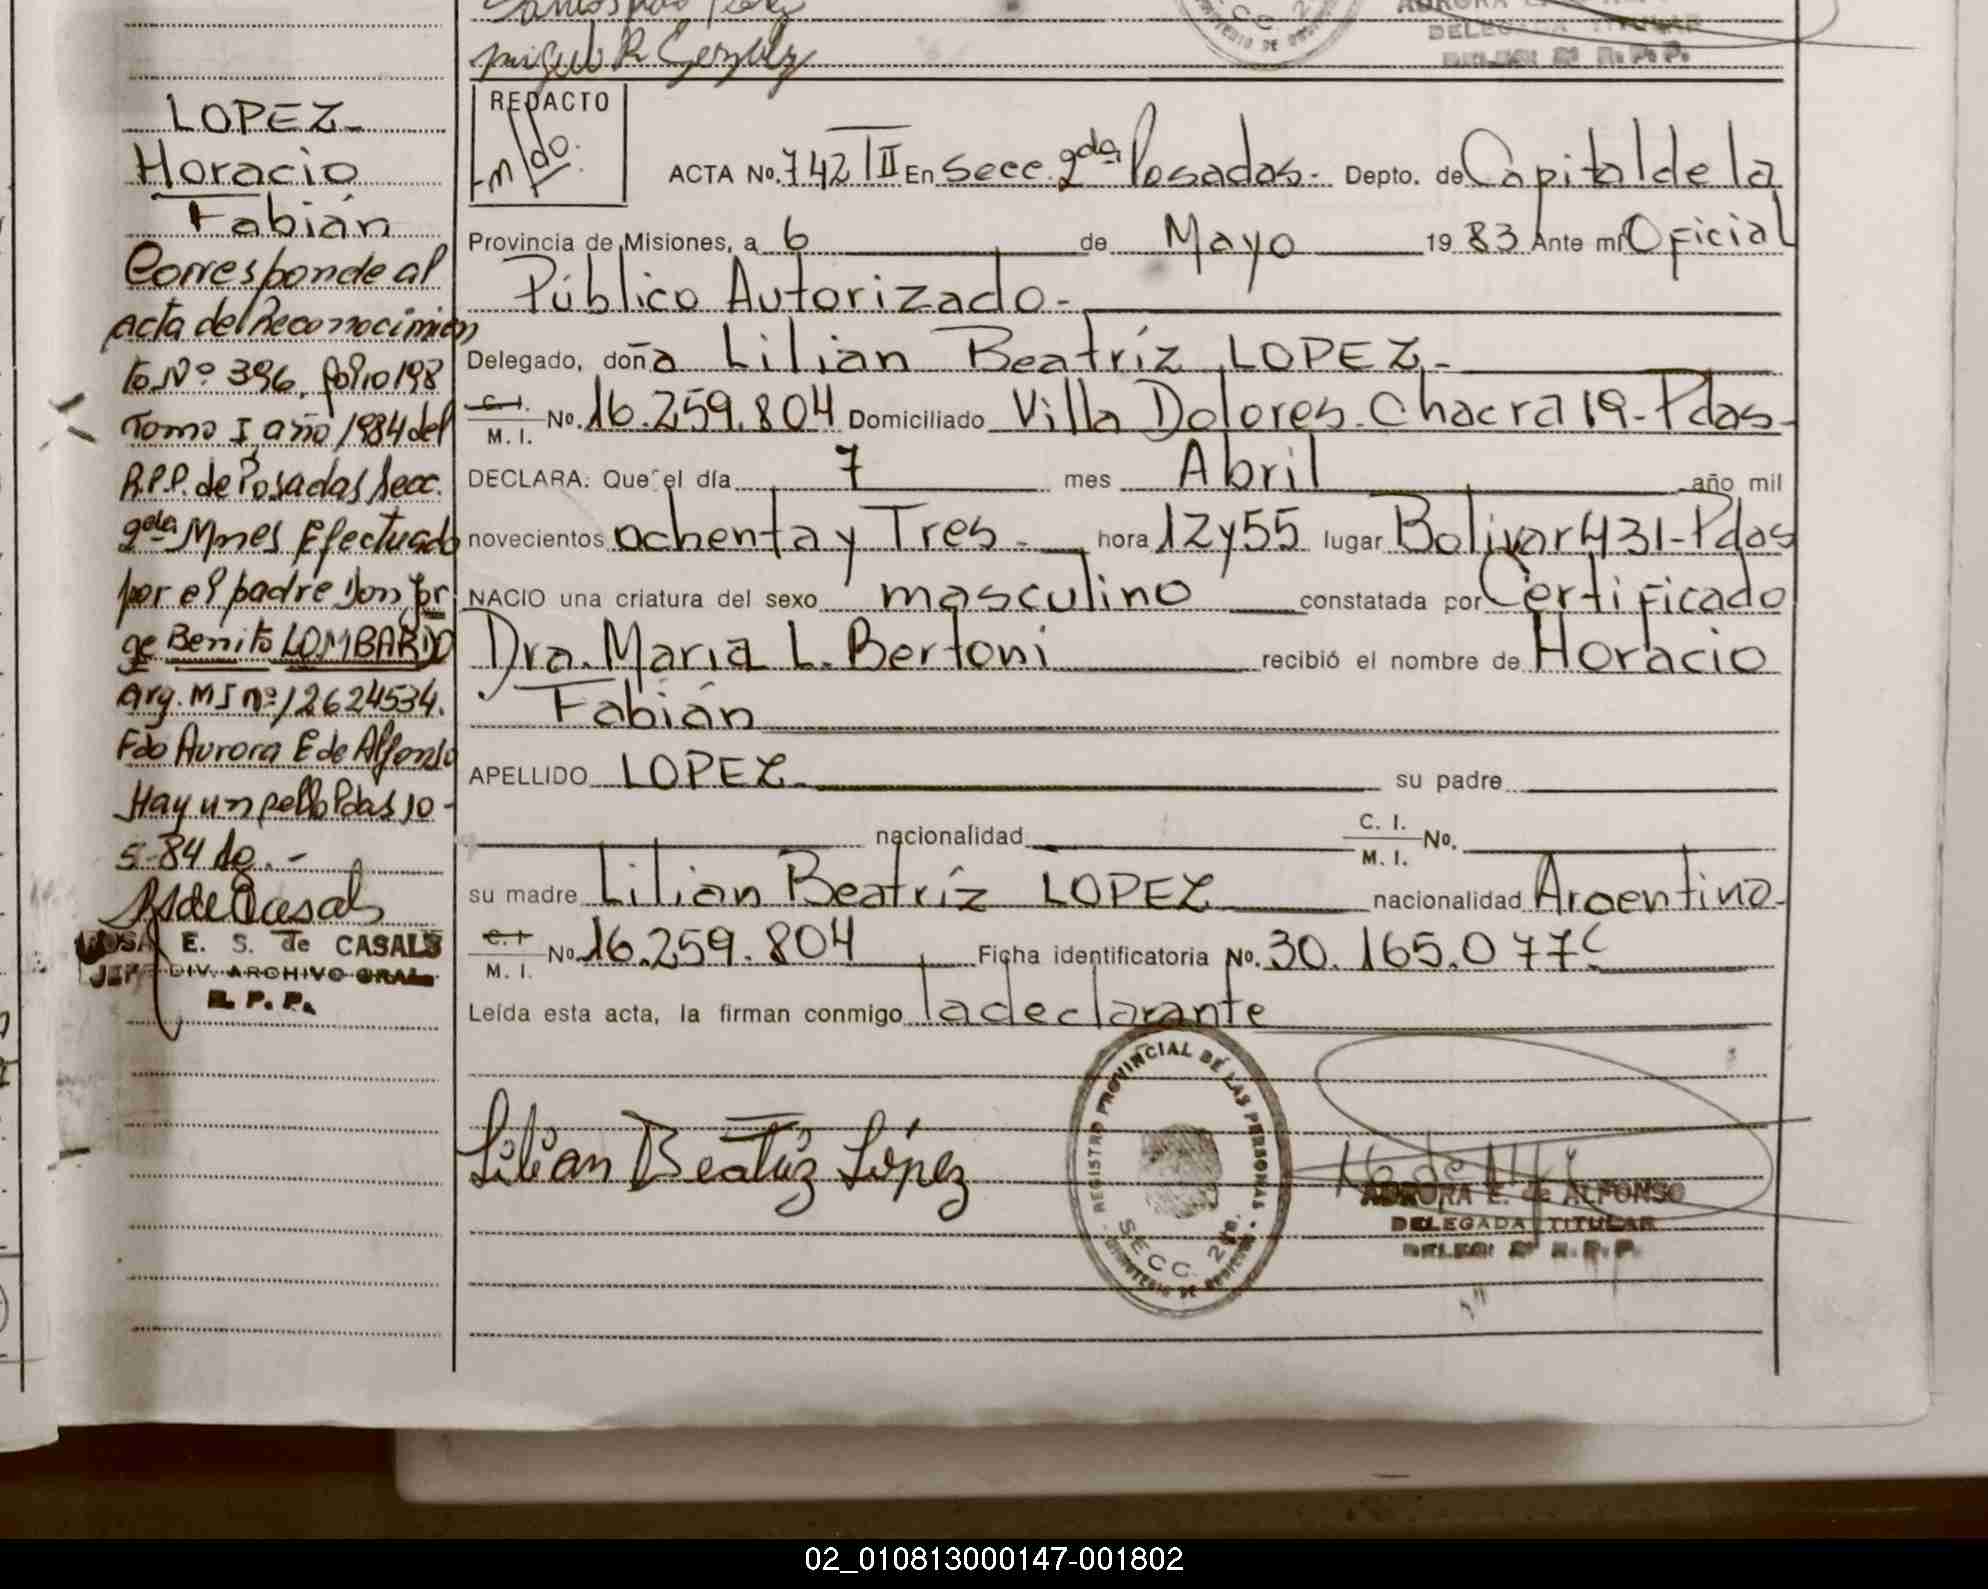 LOPEZ-
Horacio
Fabián
Corresponde al
acta de Reconocimien
to Nº 396, folio 198
Tomo I año 1984 del
R.P.P. de Posadas Secc.
2da Mnes Efectuado
por el padre Don Jor
ge Benito LOMBARDO
Arg. MI nº 12624534.
Fdo Aurora E de Alfonso
Hay un sello Pdas 10-
5-84
E. S. de CASALS
JEFE DIV. ARCHIVO GRAL.
R. P. P.
REDACTO
ACTA No. 742 III En Secc. 2da Posadas- Depto. de Capital de la
Provincia de Misiones, a 6 de Mayo 1983 Ante mí Oficial
Público Autorizado-
Delegado, doña Lilian Beatríz LOPEZ-
C. I. M. I. No. 16.259.804 Domiciliado Villa Dolores-Chacra 19-Pdas-
DECLARA: Que el día 7 mes Abril año mil
novecientos ochenta y Tres- hora 12y55 lugar Bolivar 431-Pdas
NACIO una criatura del sexo masculino constatada por Certificado
Dra. Maria L. Bertoni recibió el nombre de Horacio
Fabián
APELLIDO LOPEZ su padre
nacionalidad C. I. M. I. No.
su madre Lilian Beatríz LOPEZ nacionalidad Argentina-
C. I. M. I. No. 16.259.804 Ficha identificatoria No. 30.165.077
Leída esta acta, la firman conmigo la declarante
Lilian Beatriz López
REGISTRO PROVINCIAL DE LAS PERSONAS
SECC. 2da.
AURORA E. de ALFONSO
DELEGADA TITULAR
DELEG. 2ª R.P.P.
02_010813000147-001802